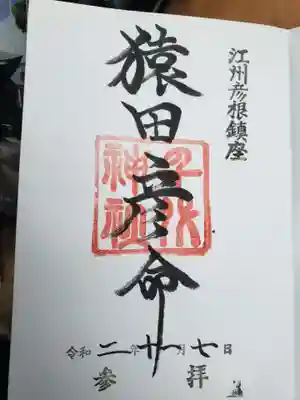 江州彦根鎮座
猿田彦命
千代
神社
令和二年十一月七日
参拝